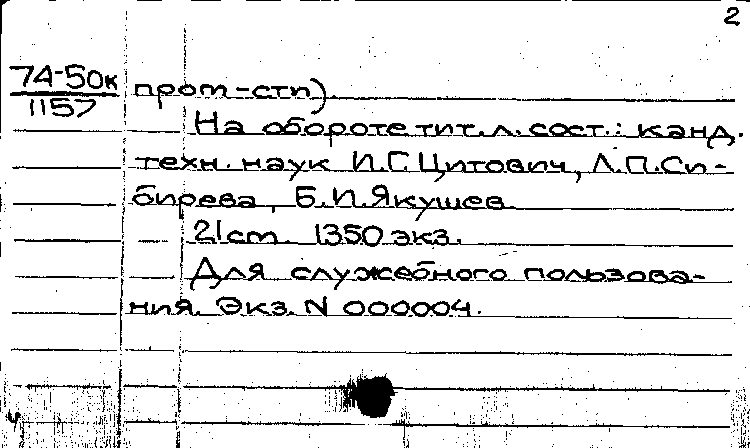 2
74-50к
1157
пром-сти).
На обороте тит. л. сост.: канд.
техн. наук И.Г. Цитович, Л.П. Си-
бирева, Б.И. Якушев.
21 cm. 1350 экз.
Для служебного пользова-
ния. Экз. N 000004.